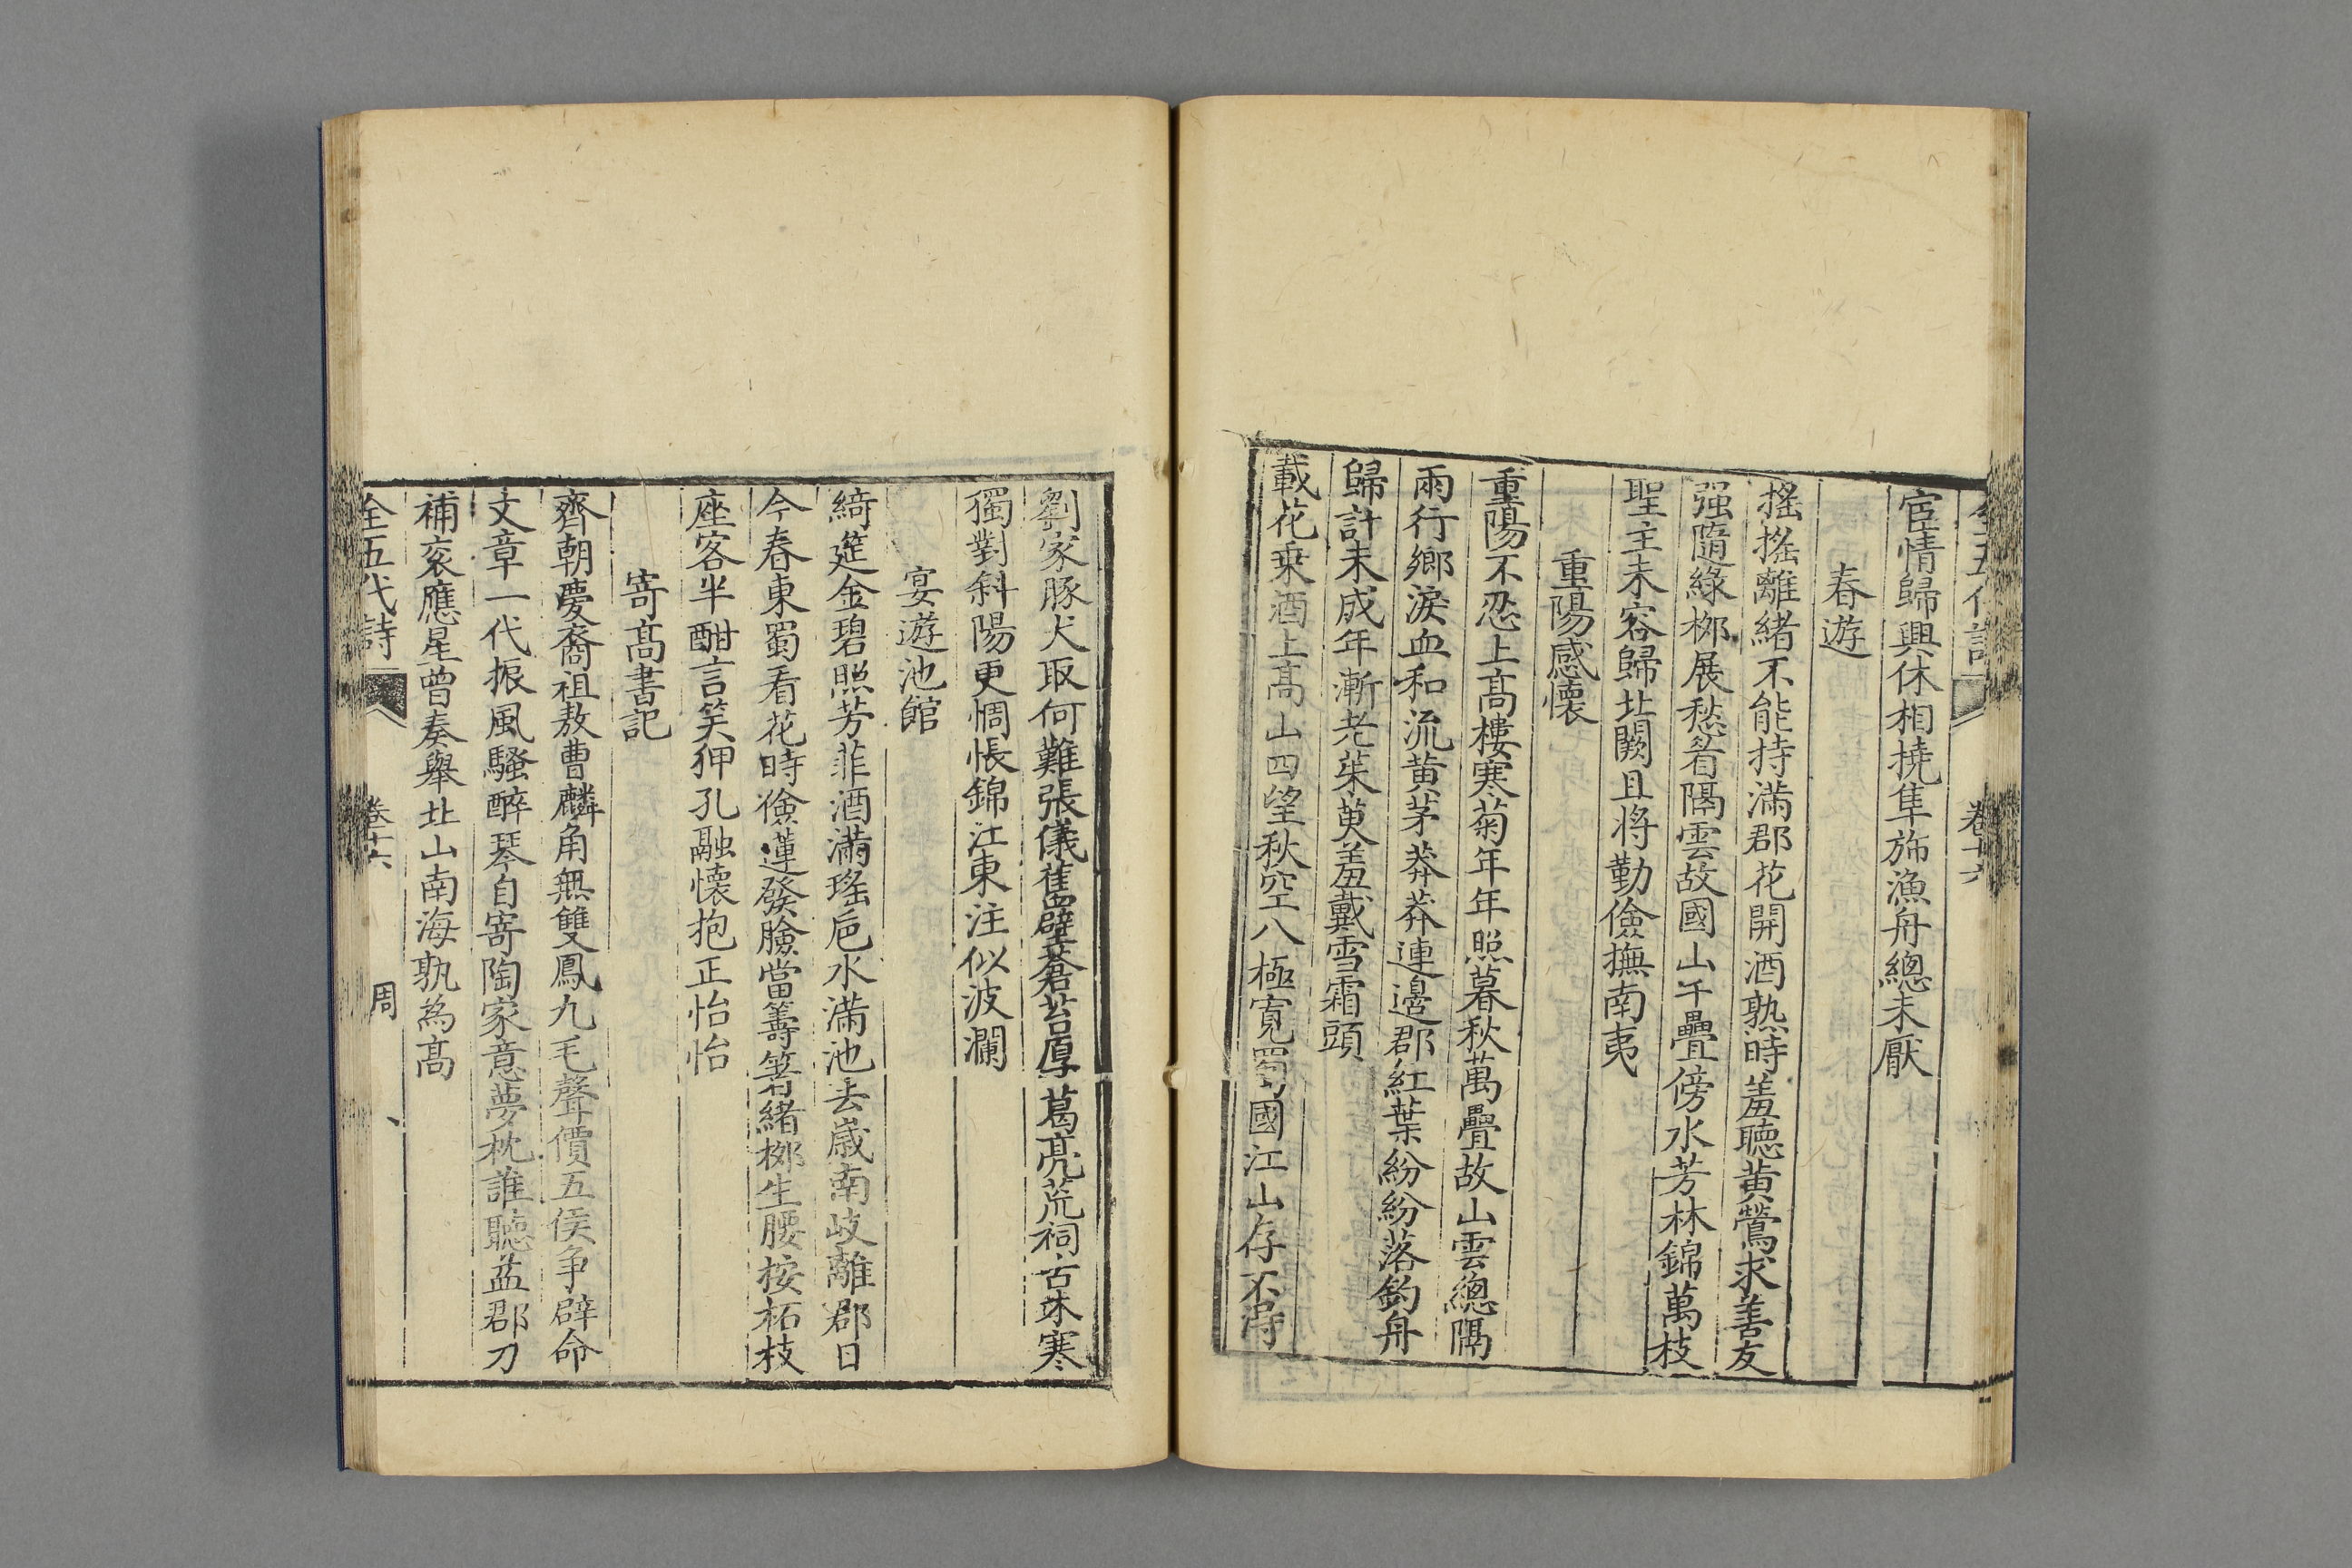 全五代詩 卷十六
宦情歸興休相撓隼旆漁舟總未厭
春遊
搖搖離緒不能持滿郡花開酒熟時羞聽黄鶯求善友
强隨綠桞展愁眉隔雲故國山千疊傍水芳林錦萬枝
聖主未容歸北闕且將勤儉撫南夷
重陽感懷
重陽不忍上髙樓寒菊年年照暮秋萬疊故山雲總隔
兩行鄉淚血和流黄茅莽莽連邊郡紅葉紛紛落釣舟
歸計未成年漸老茱萸羞戴雪霜頭
載花乗酒上髙山四望秋空八極寛蜀國江山存不得
劉家豚犬取何難張儀舊壁蒼苔厚葛亮荒祠古木寒
獨對斜陽更惆悵錦江東注似波瀾
宴遊池館
綺筵金碧照芳菲酒滿瑤巵水滿池去歲南岐離郡日
今春東蜀看花時儉蓮發臉當籌箸緒桞生腰按柘枝
座客半酣言笑狎孔融懷抱正怡怡
寄髙書記
齊朝慶裔祖敖曹麟角無雙鳳九毛聲價五侯争辟命
文章一代振風騷醉琴自寄陶家意夢枕誰聽益郡刀
補衮應星曾奏舉北山南海孰為髙
全五代詩 卷十六 周